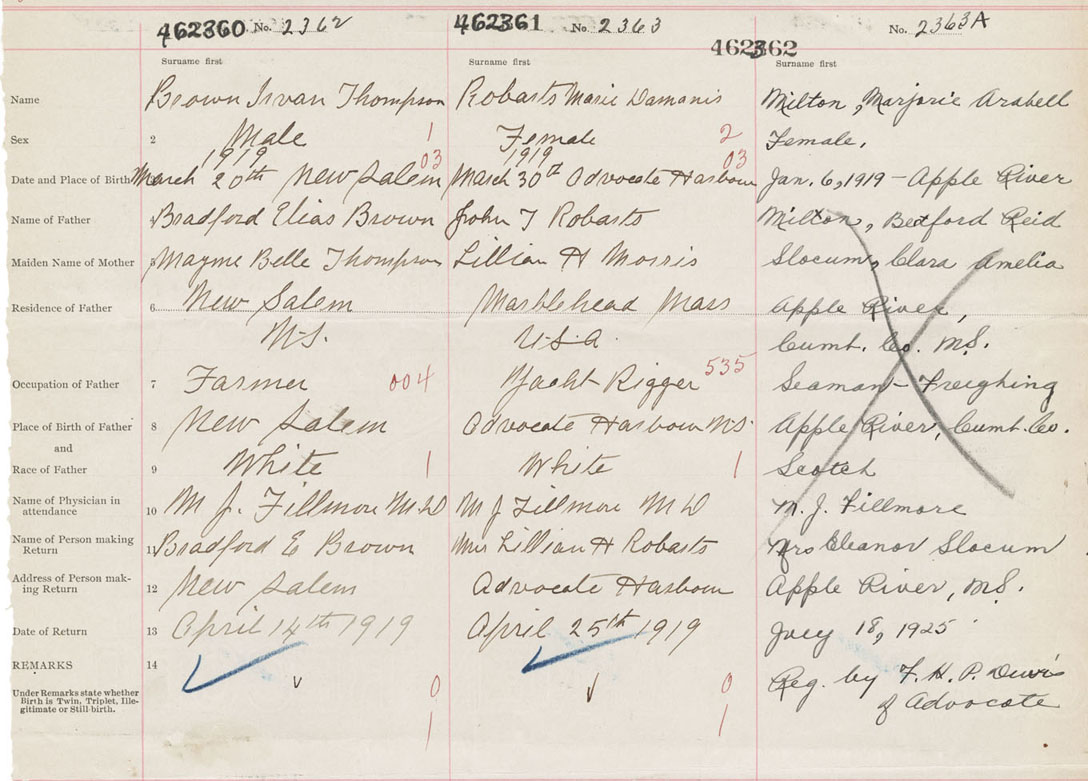 462360 No. 2362 462361 No 2363 462362 No. 2363A
Surname first Surname first Surname first
Name Brown Irvan Thompson Robarts Marie Damanis Milton, Marjorie Arabell
Sex 2 Male 1 Female 2 Female.
1919 03 1919 03
Date and Place of Birth March 20th New Salem March 30th Advocate Harbour Jan. 6, 1919 - Apple River
Name of Father 4 Bradford Elias Brown John T Robarts Milton, Bedford Reid
Maiden Name of Mother 5 Mayme Belle Thompson Lillian H Morris Slocum, Clara Amelia
Residence of Father 6 New Salem Marblehead Mass Apple River,
N.S. U.S.A. Cumb. Co. N.S.
Occupation of Father 7 Farmer 004 Yacht Rigger 535 Seaman - Freighing
Place of Birth of Father 8 New Salem Advocate Harbour N.S. Apple River, Cumb. Co.
and
Race of Father 9 White 1 White 1 Scotch
Name of Physician in
attendance 10 M. J. Fillmore M D M J Fillmore M D M. J. Fillmore
Name of Person making
Return 11 Bradford E Brown Mrs Lillian H Robarts Mrs Eleanor Slocum
Address of Person mak-
ing Return 12 New Salem Advocate Harbour Apple River, N.S.
Date of Return 13 April 14th 1919 April 25th 1919 July 18, 1925
REMARKS 14
Under Remarks state whether
Birth is Twin, Triplet, Ille-
gitimate or Still-birth.
0 0 Reg. by F. H. P.
1 1 of Advocate